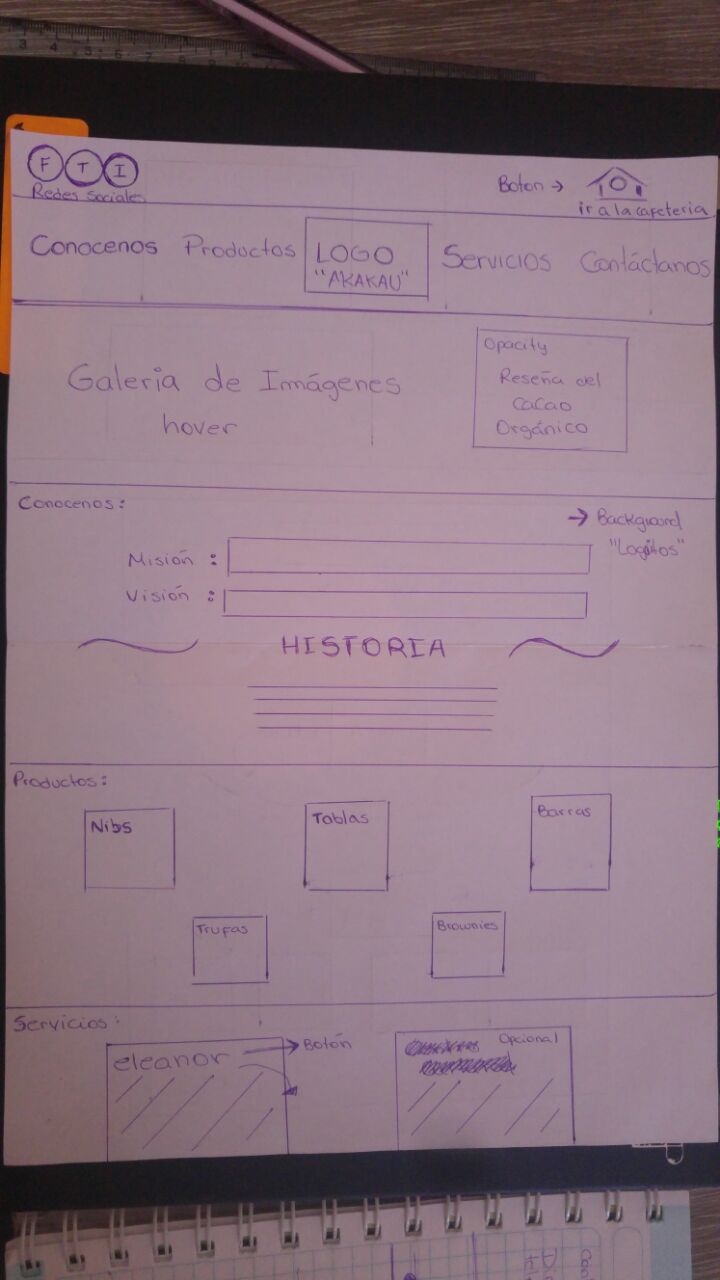 F T I
Redes Sociales
Boton →
ir a la cafeteria
Conocenos Productos LOGO Servicios Contáctanos
"AKAKAU"
Galeria de Imágenes
hover
Opacity
Reseña del
Cacao
Orgánico
Conocenos:
→ Background
"Logitos"
Misión :
Visión :
HISTORIA
Productos:
Nibs
Tablas
Barras
Trufas
Brownies
Servicios:
eleanor → Botón
Opcional